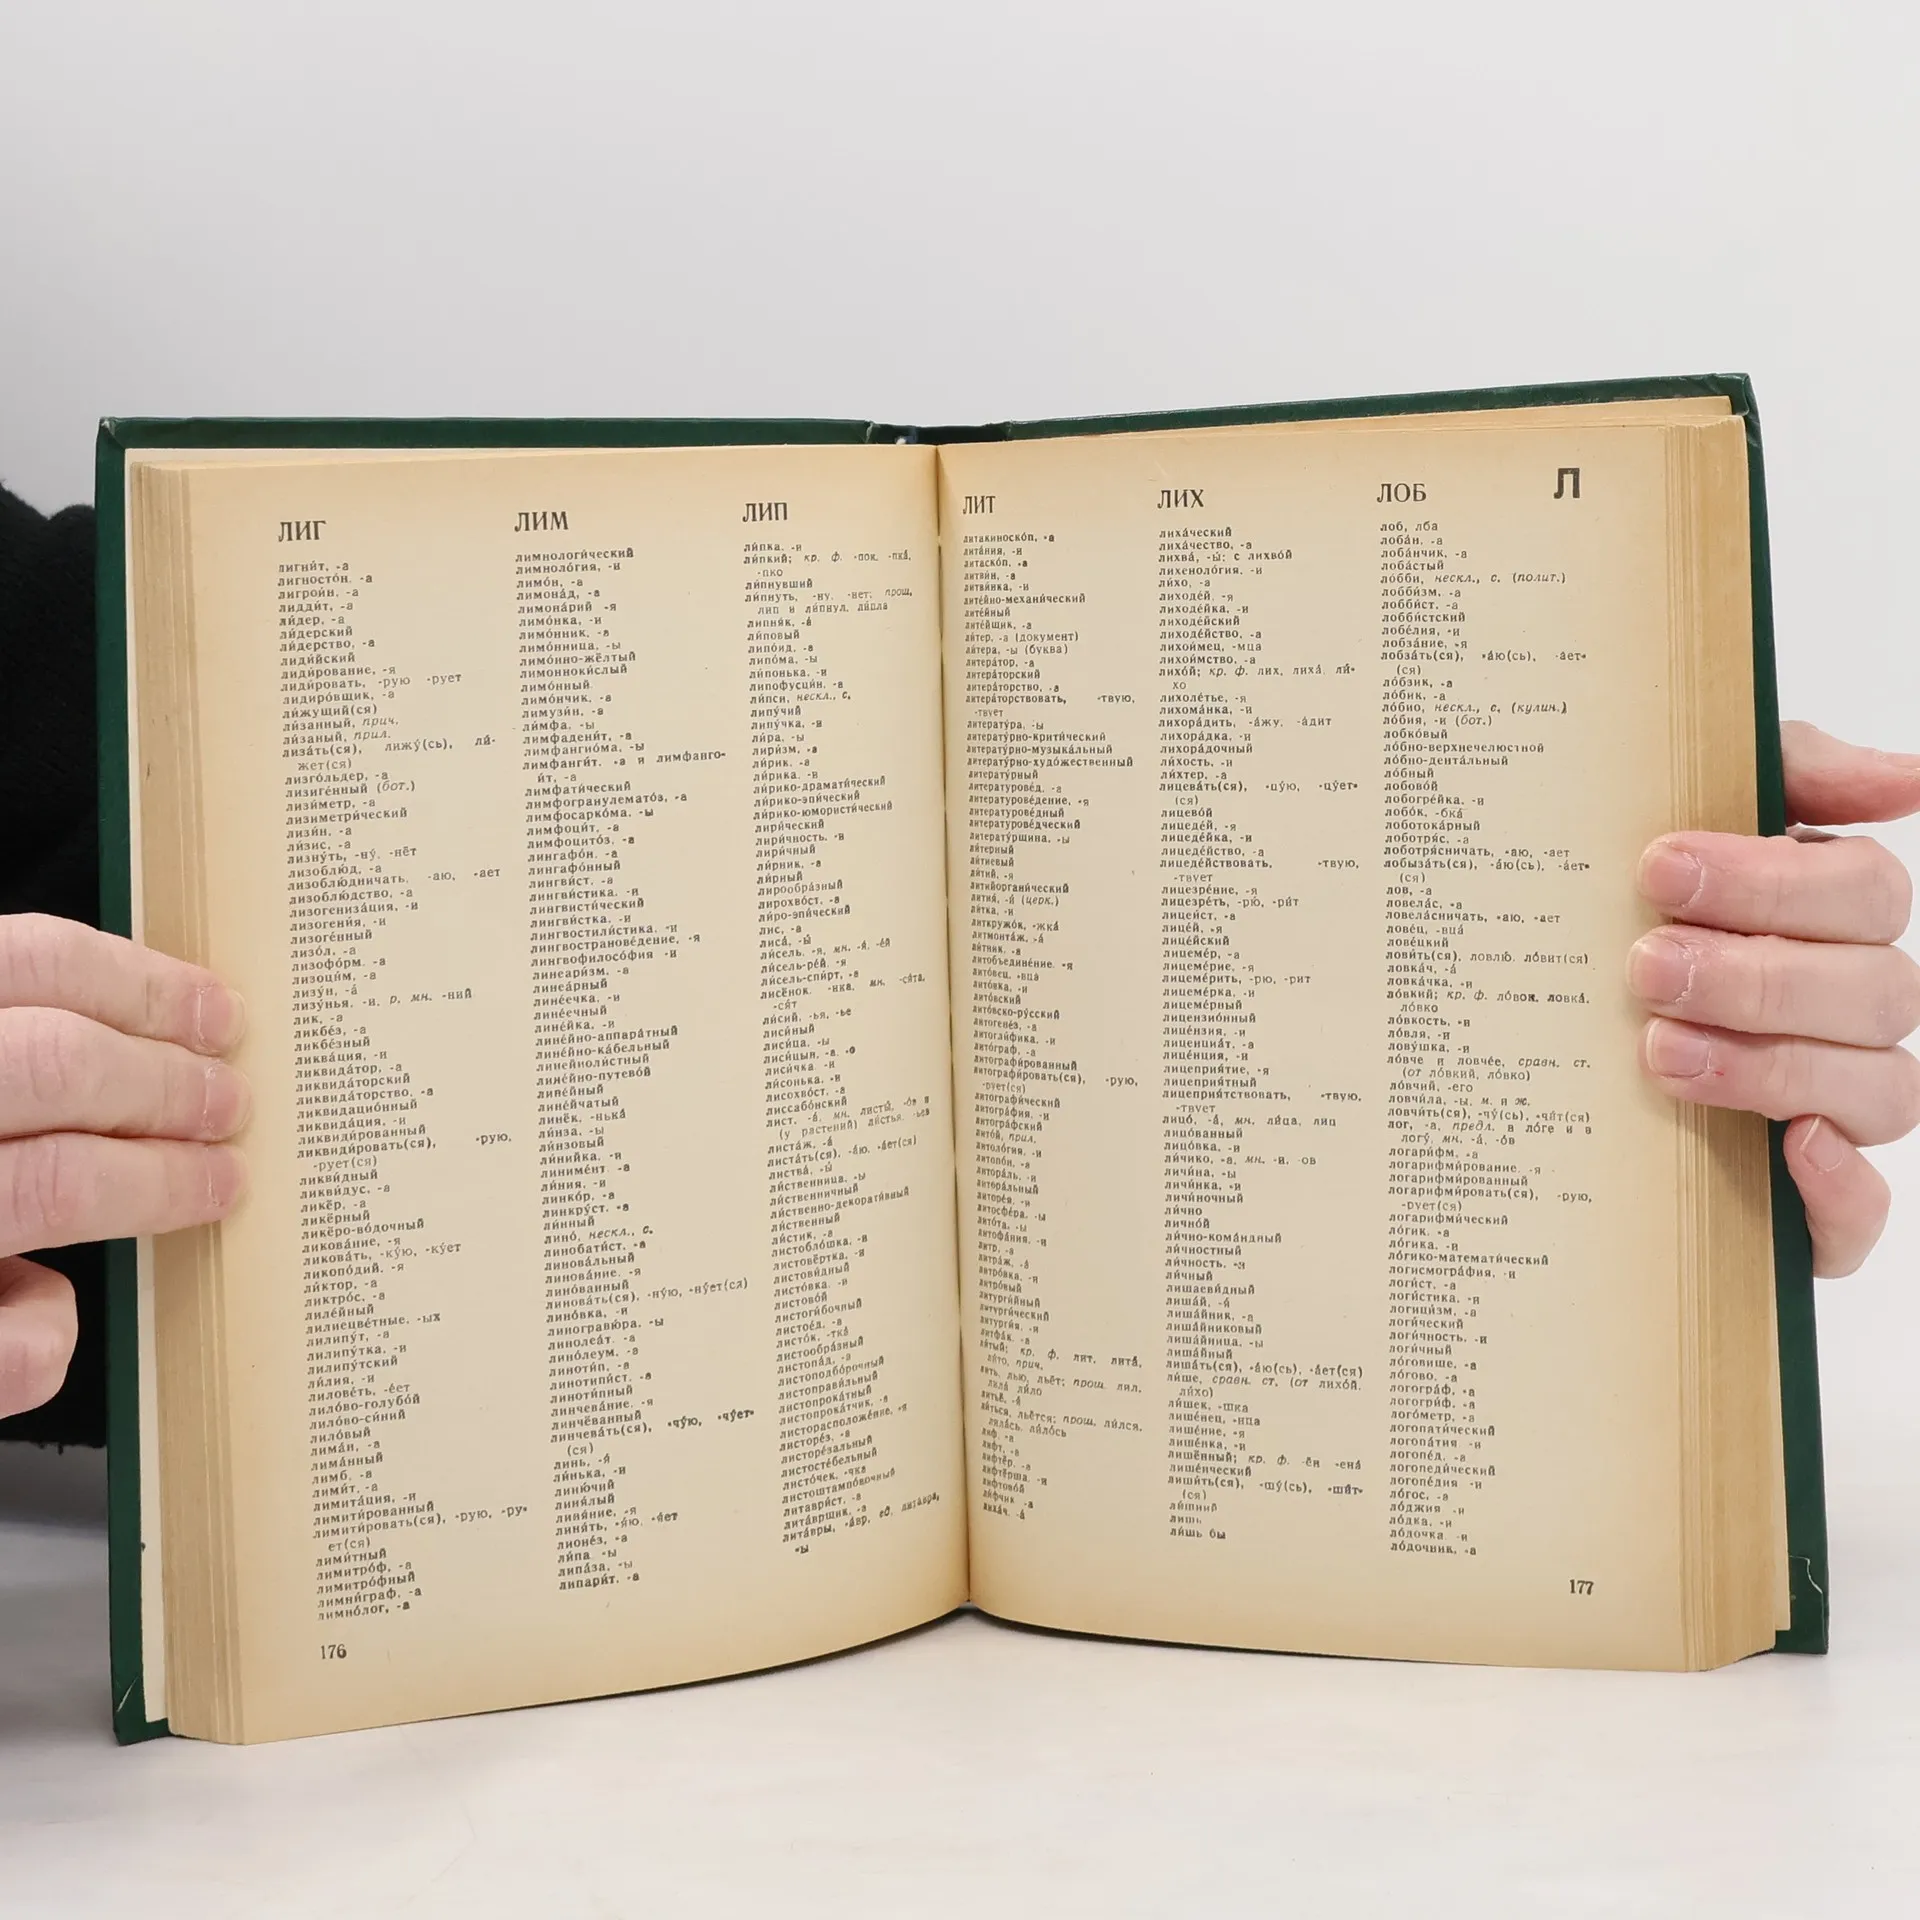 ЛИГ
лигни́т, -а
лигносто́н, -а
лигрои́н, -а
лидди́т, -а
ли́дер, -а
ли́дерский
ли́дерство, -а
лиди́йский
лиди́рование, -я
лиди́ровать, -рую -рует
лидиро́вщик, -а
ли́жущий(ся)
ли́занный, прич.
ли́заный, прил.
лиза́ть(ся), лижу́(сь), ли́-
жет(ся)
лизго́льдер, -а
лизиге́нный (бот.)
лизи́метр, -а
лизиметри́ческий
лизи́н, -а
ли́зис, -а
лизну́ть, -ну́, -нёт
лизоблю́д, -а
лизоблю́дничать, -аю, -ает
лизоблю́дство, -а
лизогениза́ция, -и
лизогени́я, -и
лизоге́нный
лизо́л, -а
лизофо́рм, -а
лизоци́м, -а
лизу́н, -а́
лизу́нья, -и, р. мн. -ний
лик, -а
ликбе́з, -а
ликбе́зный
ликва́ция, -и
ликвида́тор, -а
ликвида́торский
ликвида́торство, -а
ликвидацио́нный
ликвида́ция, -и
ликвиди́рованный
ликвиди́ровать(ся), -рую,
-рует(ся)
ликви́дный
ликви́дус, -а
ликёр, -а
ликёрный
ликёро-во́дочный
ликова́ние, -я
ликова́ть, -ку́ю, -ку́ет
ликопо́дий, -я
ли́ктор, -а
ликтро́с, -а
лиле́йный
лилиецве́тные, -ых
лилипу́т, -а
лилипу́тка, -и
лилипу́тский
ли́лия, -и
лилове́ть, -е́ет
лило́во-голубо́й
лило́во-си́ний
лило́вый
лима́н, -а
лима́нный
лимб, -а
лими́т, -а
лимита́ция, -и
лимити́рованный
лимити́ровать(ся), -рую, -ру-
ет(ся)
лими́тный
лимитро́ф, -а
лимитро́фный
лимни́граф, -а
лимно́лог, -а
176
ЛИМ
лимнологи́ческий
лимноло́гия, -и
лимо́н, -а
лимона́д, -а
лимона́рий -я
лимо́нка, -и
лимо́нник, -а
лимо́нница, -ы
лимо́нно-жёлтый
лимоннокислый
лимо́нный
лимо́нчик, -а
лимузи́н, -а
ли́мфа, -ы
лимфадени́т, -а
лимфангио́ма, -ы
лимфанги́т, -а и лимфанго-
и́т, -а
лимфати́ческий
лимфогранулемато́з, -а
лимфосарко́ма, -ы
лимфоци́т, -а
лимфоцито́з, -а
лингафо́н, -а
лингафо́нный
лингви́ст, -а
лингви́стика, -и
лингвисти́ческий
лингви́стка, -и
лингвостили́стика, -и
лингвостранове́дение, -я
лингвофилосо́фия -и
линеари́зм, -а
линеа́рный
лине́ечка, -и
лине́ечный
лине́йка, -и
лине́йно-аппара́тный
лине́йно-ка́бельный
линейноли́стный
лине́йно-путево́й
лине́йный
лине́йчатый
линёк, -нька́
ли́нза, -ы
ли́нзовый
ли́нийка, -и
линиме́нт -а
ли́ния, -и
линко́р, -а
линкру́ст, -а
ли́нный
лино́, нескл., с.
линобати́ст, -а
линова́льный
линова́ние, -я
лино́ванный
линова́ть(ся), -ну́ю, -ну́ет(ся)
лино́вка, -и
линогравю́ра, -ы
линолеа́т, -а
лино́леум, -а
линоти́п, -а
линотипи́ст, -а
линоти́пный
линчева́ние, -я
линчёванный
линчева́ть(ся), -чу́ю, -чу́ет-
(ся)
линь, -я́
ли́нька, -и
линю́чий
линя́лый
линя́ние, -я
линя́ть, -я́ю, -я́ет
лионе́з, -а
ли́па -ы
липа́за, -ы
липари́т, -а
ЛИП
ли́пка, -и
ли́пкий; кр. ф. -пок, -пка́,
-пко
ли́пнувший
ли́пнуть, -ну, -нет; прош,
лип и ли́пнул, ли́пла
липня́к, -а́
ли́повый
липо́ид, -а
липо́ма, -ы
ли́понька, -и
липофусци́н, -а
ли́пси, нескл., с.
липу́чий
липу́чка, -и
ли́ра, -ы
лири́зм, -а
ли́рик, -а
ли́рика, -и
ли́рико-драмати́ческий
ли́рико-эпи́ческий
ли́рико-юмористи́ческий
лири́ческий
лири́чность, -и
лири́чный
ли́рник, -а
ли́рный
лирообра́зный
лирохво́ст, -а
ли́ро-эпи́ческий
лис, -а
лиса́, -ы́
ли́сель, -я, мн. -я́, -е́й
ли́сель-ре́й, -я
ли́сель-спи́рт, -а
лисёнок, -нка, мн. -ся́та,
-ся́т
ли́сий, -ья, -ье
лиси́ный
лиси́ца, -ы
лиси́цын, -а, -о
лиси́чка -и
ли́сонька, -и
лисохво́ст, -а
лиссабо́нский
лист, -а́, мн. листы́, -о́в и
(у расте́ний) ли́стья, -ьев
листа́ж, -а́
листа́ть(ся), -а́ю, -а́ет(ся)
листва́, -ы́
ли́ственница, -ы
ли́ственничный
ли́ственно-декорати́вный
ли́ственный
ли́стик, -а
листобло́шка, -и
листовёртка, -и
листови́дный
листо́вка, -и
листово́й
листоги́бочный
листое́д, -а
листо́к, -тка́
листообра́зный
листопа́д, -а
листоподбо́рочный
листопра́вильный
листопрока́тный
листопрока́тчик, -а
листорасположе́ние, -я
листоре́з, -а
листоре́зальный
листосте́бельный
листо́чек, -чка
листоштампо́вочный
литаври́ст, -а
лита́врщик, -а
лита́вры, -а́вр, ед. лита́вра,
-ы
ЛИТ
литакиноско́п, -а
лита́ния, -и
литаско́п, -а
литви́н, -а
литви́нка, -и
лите́йно-механи́ческий
лите́йный
лите́йщик, -а
ли́тер, -а (документ)
ли́тера, -ы (буква)
литера́тор, -а
литера́торский
литера́торство, -а
литера́торствовать, -твую,
-твует
литерату́ра, -ы
литерату́рно-крити́ческий
литерату́рно-музыка́льный
литерату́рно-худо́жественный
литерату́рный
литературове́д, -а
литературове́дение, -я
литературове́дный
литературове́дческий
литерату́рщина, -ы
ли́терный
ли́тиевый
ли́тий, -я
литийоргани́ческий
лития́, -и́ (церк.)
ли́тка, -и
литкружо́к, -жка́
литмонта́ж, -а́
ли́тник, -а
литобъедине́ние, -я
лито́вец, -вца
лито́вка, -и
лито́вский
лито́вско-ру́сский
литогене́з, -а
литогли́фика, -и
лито́граф, -а
литографи́рованный
литографи́ровать(ся), -рую,
-рует(ся)
литографи́ческий
литогра́фия, -и
литогра́фский
лито́й, прил.
литоло́гия, -и
литопо́н, -а
литора́ль, -и
литора́льный
литоре́я, -и
литосфе́ра, -ы
лито́та, -ы
литофа́ния, -и
литр, -а
литра́ж, -а́
литро́вка, -и
литро́вый
литурги́йный
литурги́ческий
литурги́я, -и
литфа́к, -а
ли́тый; кр. ф. лит, лита́,
ли́то, прич.
лить, лью, льёт; прош. лил,
лила́ ли́ло
литьё, -я́
ли́ться, льётся; прош. ли́лся,
лила́сь, ли́ло́сь
лиф, -а
лифт, -а
лифтёр, -а
лифтёрша, -и
ли́фтовой
ли́фчик -а
лиха́ч, -а́
ЛИХ
лиха́ческий
лиха́чество, -а
лихва́, -ы́: с лихво́й
лихеноло́гия, -и
ли́хо, -а
лиходе́й, -я
лиходе́йка, -и
лиходе́йский
лиходе́йство, -а
лихои́мец, -мца
лихои́мство, -а
лихо́й; кр. ф. лих, лиха́, ли́-
хо
лихоле́тье, -я
лихома́нка, -и
лихора́дить, -а́жу, -а́дит
лихора́дка, -и
лихора́дочный
ли́хость, -и
ли́хтер, -а
лицева́ть(ся), -цу́ю, -цу́ет-
(ся)
лицево́й
лицеде́й, -я
лицеде́йка, -и
лицеде́йство, -а
лицеде́йствовать, -твую,
-твует
лицезре́ние, -я
лицезре́ть, -рю́, -ри́т
лицеи́ст, -а
лице́й, -я
лице́йский
лицеме́р, -а
лицеме́рие, -я
лицеме́рить, -рю, -рит
лицеме́рка, -и
лицеме́рный
лицензио́нный
лице́нзия, -и
лиценциа́т, -а
лице́нция, -и
лицеприя́тие, -я
лицеприя́тный
лицеприя́тствовать, -твую,
-твует
лицо́, -а́, мн. ли́ца, лиц
лицо́ванный
лицо́вка, -и
ли́чико, -а, мн. -и, -ов
личи́на, -ы
личи́нка, -и
личи́ночный
ли́чно
лично́й
ли́чно-кома́ндный
ли́чностный
ли́чность, -и
ли́чный
лишаеви́дный
лиша́й, -я́
лиша́йник, -а
лиша́йниковый
лиша́йница, -ы
лиша́йный
лиша́ть(ся), -а́ю(сь), -а́ет(ся)
ли́ше, сравн. ст. (от лихо́й,
ли́хо)
ли́шек, -шка
лише́нец, -нца
лише́ние, -я
лише́нка, -и
лишённый; кр. ф. -ён -ена́
лише́нческий
лиши́ть(ся), -шу́(сь), -ши́т-
(ся)
ли́шний
лишь
ли́шь бы
ЛОБ
лоб, лба
лоба́н, -а
лоба́нчик, -а
лоба́стый
ло́бби, нескл., с. (полит.)
лобби́зм, -а
лобби́ст, -а
лобби́стский
лобе́лия, -и
лобза́ние, -я
лобза́ть(ся), -а́ю(сь), -а́ет-
(ся)
ло́бзик, -а
ло́бик, -а
ло́био, нескл., с. (кулин.)
ло́бия, -и (бот.)
лобко́вый
ло́бно-верхнечелюстно́й
ло́бно-дента́льный
ло́бный
лобово́й
лобогре́йка, -и
лобо́к, -бка́
лоботока́рный
лоботря́с, -а
лоботря́сничать, -аю, -ает
лобыза́ть(ся), -а́ю(сь), -а́ет-
(ся)
лов, -а
ловела́с, -а
ловела́сничать, -аю, -ает
лове́ц, -вца́
лове́цкий
лови́ть(ся), ловлю́, ло́вит(ся)
ловка́ч, -а́
ловка́чка, -и
ло́вкий; кр. ф. ло́вок, ловка́,
ло́вко
ло́вкость, -и
ло́вля, -и
лову́шка, -и
ло́вче и ловче́е, сравн. ст.
(от ло́вкий, ло́вко)
ло́вчий, -его
ловчи́ла, -ы, м. и ж.
ловчи́ть(ся), -чу́(сь), -чи́т(ся)
лог, -а, предл. в ло́ге и в
логу́, мн. -а́, -о́в
логари́фм, -а
логарифми́рование, -я
логарифми́рованный
логарифми́ровать(ся), -рую,
-рует(ся)
логарифми́ческий
ло́гик, -а
ло́гика, -и
ло́гико-математи́ческий
логисмогра́фия, -и
логи́ст, -а
логи́стика, -и
логици́зм, -а
логи́ческий
логи́чность, -и
логи́чный
ло́говище, -а
ло́гово, -а
логогра́ф, -а
логогри́ф, -а
лого́метр, -а
логопати́ческий
логопа́тия -и
логопе́д, -а
логопеди́ческий
логопе́дия -и
ло́гос, -а
ло́джия -и
ло́дка, -и
ло́дочка -и
ло́дочник, -а
Л
177